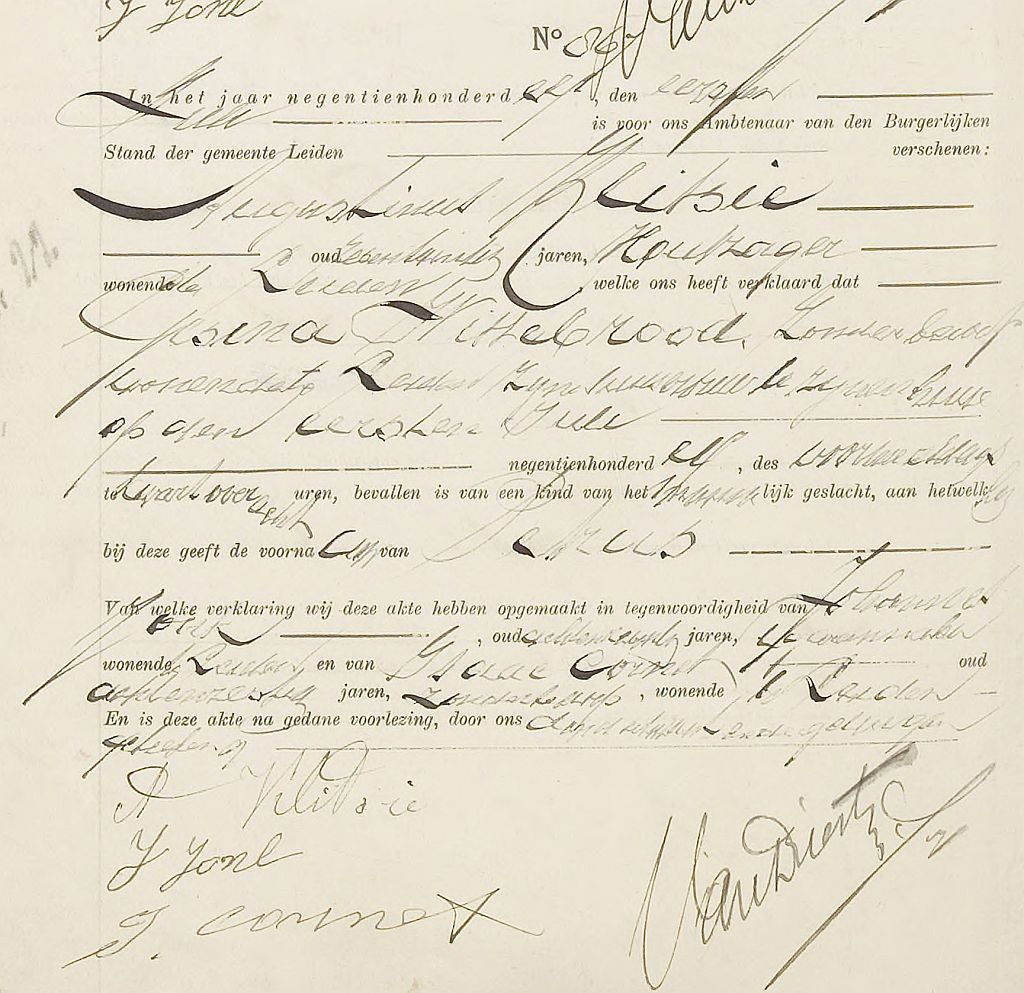 J Jonk
Nº 867
In het jaar negentienhonderd elf, den eersten
Juli is voor ons Ambtenaar van den Burgerlijken
Stand der gemeente Leiden verschenen:
Augustinus Klitsie
oud jaren, Houtzager
wonende te Leiden, welke ons heeft verklaard dat
Wittebrood, zonder beroep
wonende te Leiden zijne huisvrouw te zijnen huize
op den eersten Juli
negentienhonderd elf, des voormiddags
te kwart over acht uren, bevallen is van een kind van het mannelijk geslacht, aan hetwelk hij
bij deze geeft de voornaam van Petrus
Van welke verklaring wij deze akte hebben opgemaakt in tegenwoordigheid van Johannes
Jonk, oud jaren,
wonende te Leiden en van Isaac Cornet oud
achtenzestig jaren, zonder beroep, wonende te Leiden
En is deze akte na gedane voorlezing, door ons de en de getuigen
A Klitsie
J Jonk
J. Cornet